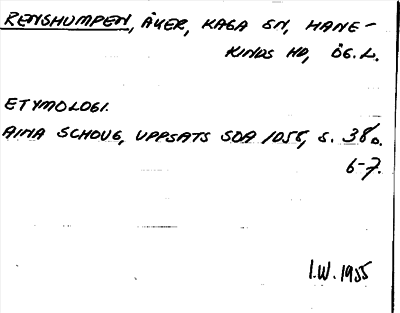 RENSHUMPEN, ÅKER, KAGA SN, HANE-
KINDS HD, ÖG.L.
ETYMOLOGI.
AINA SCHOUG, UPPSATS SOA 1058, S. 38 o.
6-7.
I.W. 1955